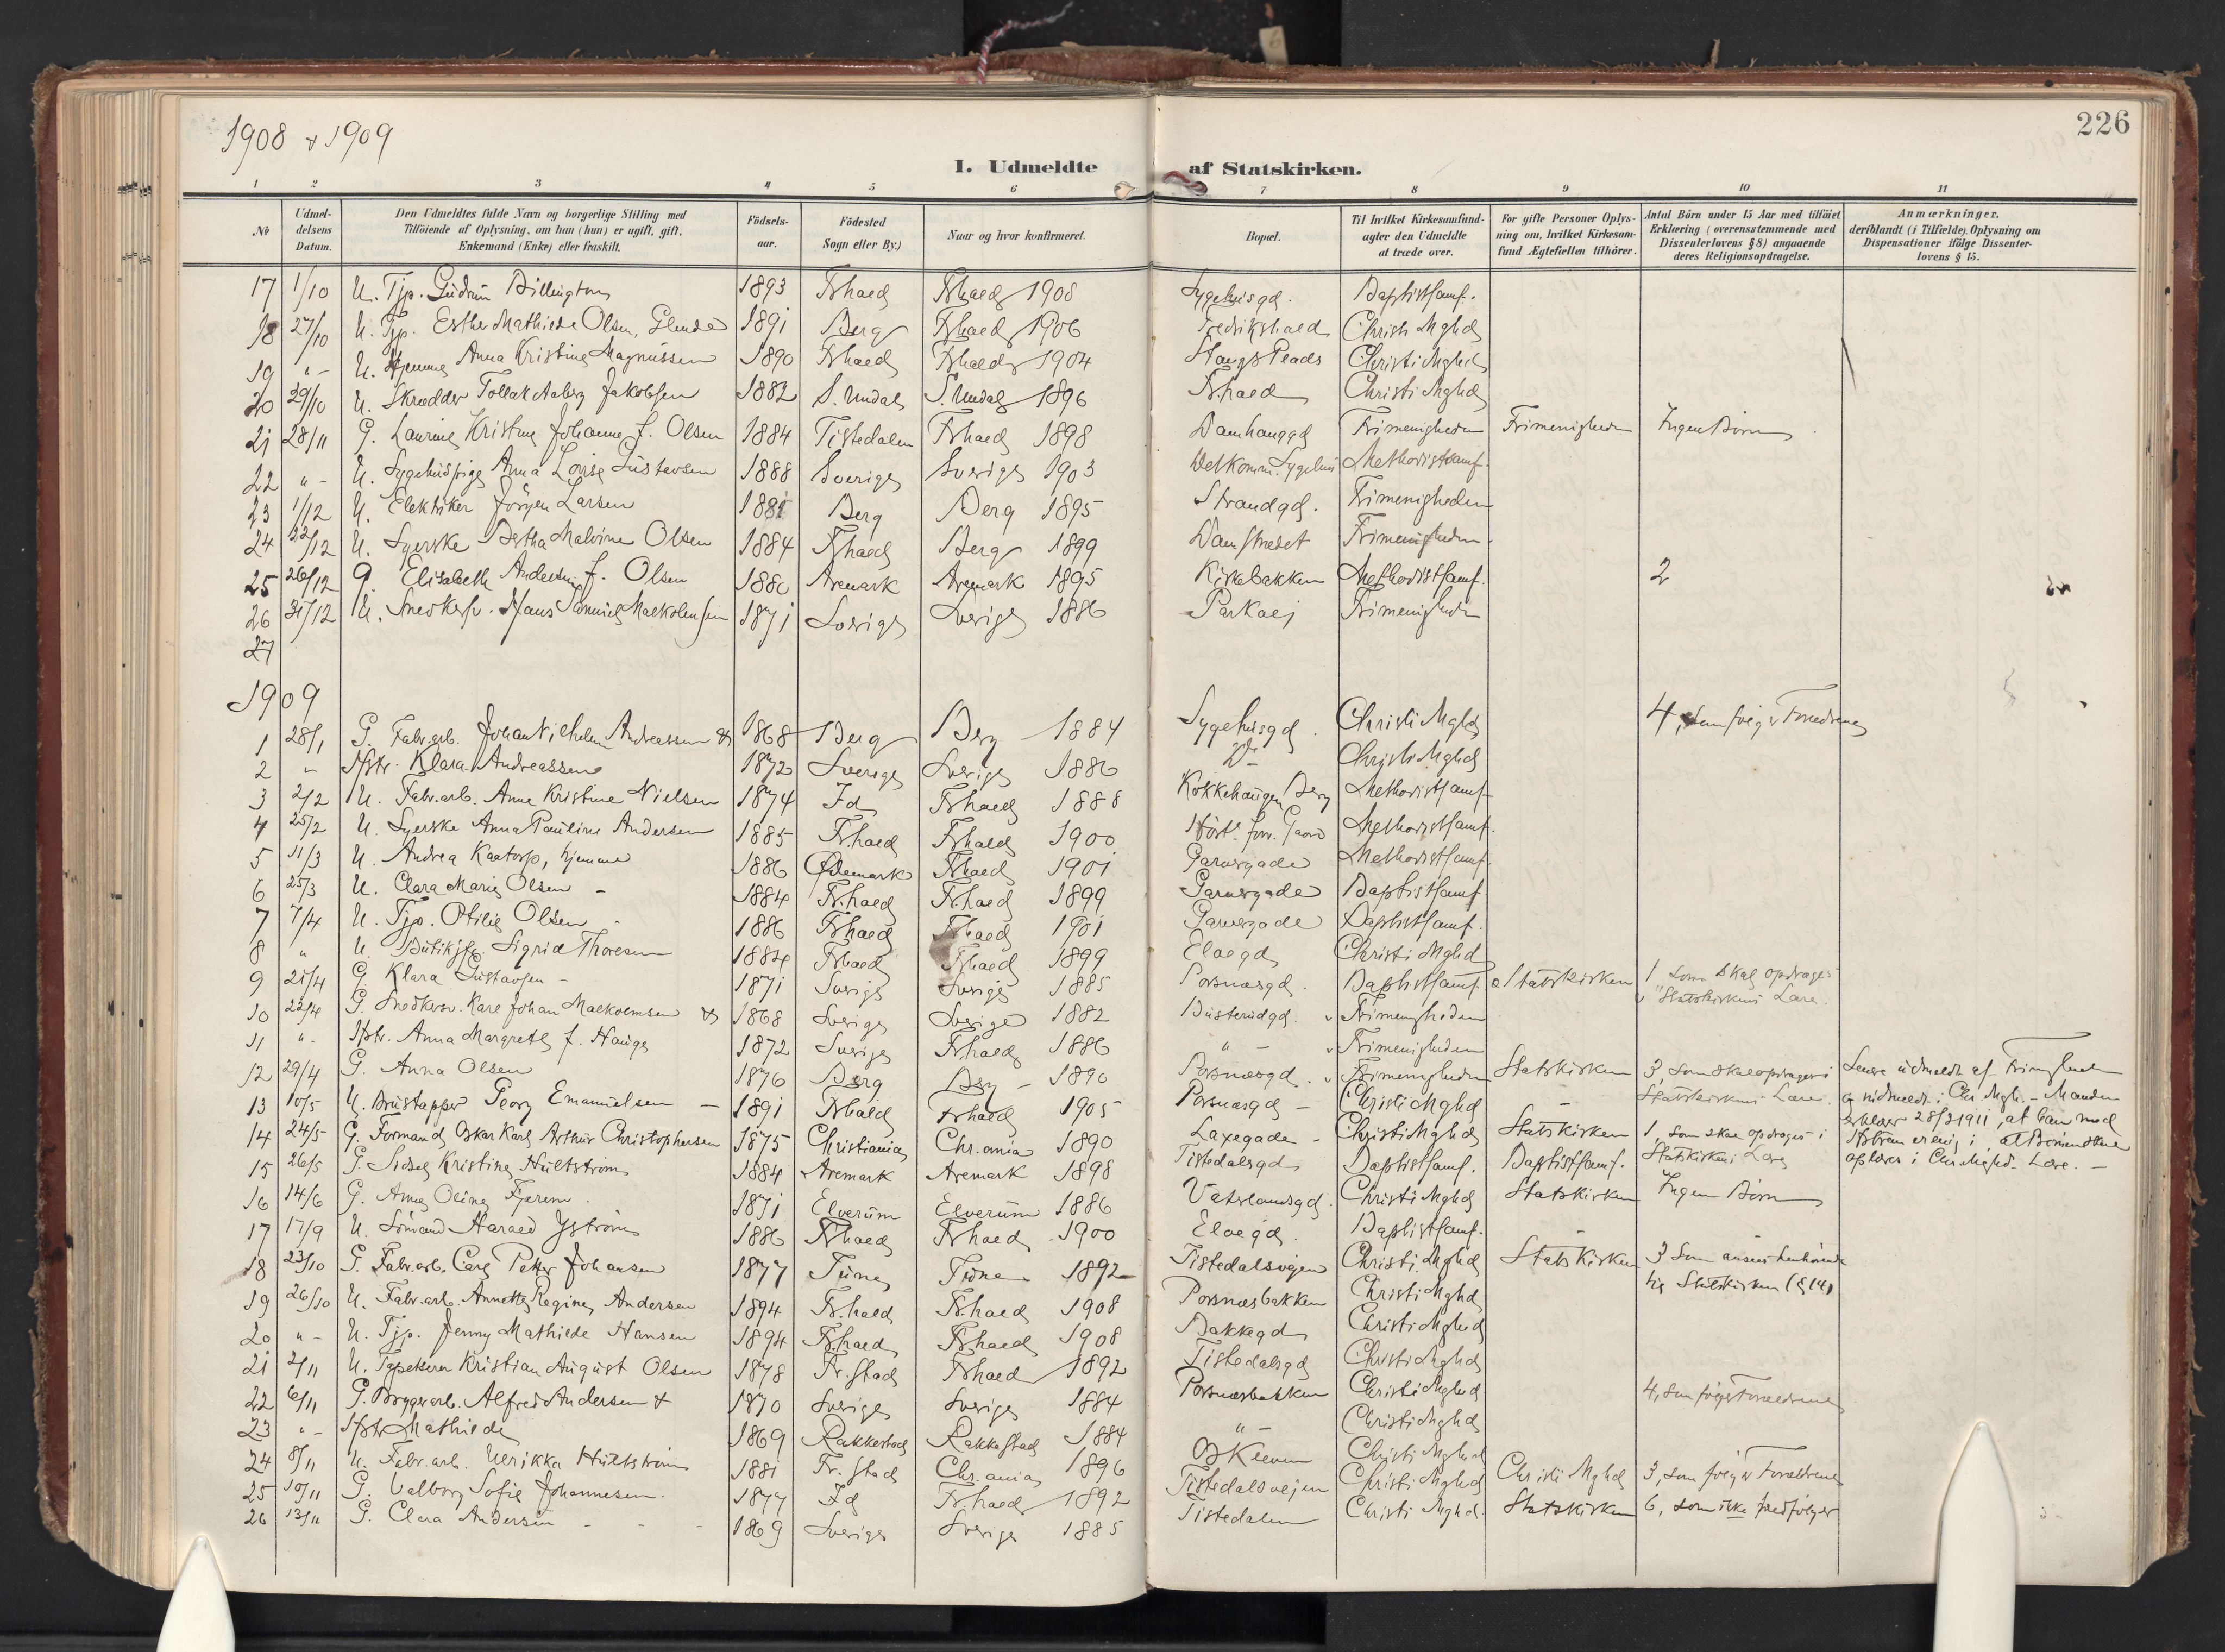 1908 & 1909
226
I. Udmeldte af Statskirken.
1 2 3 4 5 6 7 8 9 10 11
No
Udmeldelsens Datum.
Den Udmeldtes fulde Navn og borgerlige Stilling med Tilföiende af Oplysning, om han (hun) er ugift, gift, Enkemand (Enke) eller fraskilt.
Födselsaar.
Födested Sogn eller By.)
Naar og hvor konfirmeret.
Bopæl.
Til hvilket Kirkesamfund agter den Udmeldte at træde over.
For gifte Personer Oplysning om, hvilket Kirkesamfund Ægtefællen tilhörer.
Antal Börn under 15 Aar med tilföiet Erklæring (overensstemmende med Dissenterlovens § 8) angaaende deres Religionsopdragelse.
Anmærkninger, deriblandt (i Tilfælde) Oplysning om Dispensationer ifölge Dissenterlovens § 15.
17 1/10 U. Tjp. Gudrun Billington 1893 Frhald Frhald 1908 Sygehusgd. Baptistsamf.
18 27/10 U. Tjp. Esther Mathilde Olsen, Glende 1891 Berg Frhald 1906 Fredrikshald Christi Mghd
19 "- U. Hjemme Anna Kristine Magnussen 1890 Frhald Frhald 1904 Stangs Plads Christi Mghd
20 29/10 U. Skrædder Tollak Aaberg Jakobsen 1882 S. Undal S. Undal 1896 Fr.hald Christi Mghd
21 28/11 G. Laurine Kristine Johanne f. Olsen 1884 Tistedalen Frhald 1898 Damhauggd Frimenigheden Frimenigheden Ingen Börn
22 "- U. Sygehuspige Anna Lovise Gustavsen 1888 Sverige Sverige 1903 Sygehus Methodistsamf.
23 1/12 U. Elektriker Jörgen Larsen 1881 Berg Berg 1895 Strandgd. Frimenigheden
24 22/12 U. Syerske Bertha Malvine Olsen 1884 Frhald Berg 1899 Damstrædet Frimenigheden
25 26/12 G. Elisabeth Andersen f. Olsen 1880 Aremark Aremark 1895 Kirkebakken Methodistsamf. 2
26 31/12 U. Snedkersv. Hans Samuel Malkolmsen 1871 Sverige Sverige 1886 Parkalj Frimenigheden
27
1909
1 28/1 G. Fabr.arb. Johan Vilhelm Andreassen & 1868 Berg Berg 1884 Sygehusgd. Christi Mghd 4, som följer Forældrene
2 - Hstr. Klara Andreassen 1872 Sverige Sverige 1886 Do- Christi Mghd
3 2/2 U. Fabr.arb. Anne Kristine Nielsen 1874 Id Frhald 1888 Kokkehaugen Berg Methodistsamf.
4 25/2 U. Syerske Anna Pauline Andersen 1885 Fr.hald Frhald 1900 Gaard Methodistsamf.
5 11/3 U. Andrea Kaatorp, hjemme 1886 Ödemark Frhald 1901 Garvergade Methodistsamf.
6 25/3 U. Clara Marie Olsen - 1884 Fr.hald Fr.hald 1899 Garvergade Baptistsamf.
7 7/4 U. Tjp. Otilie Olsen 1886 Frhald Frhald 1901 Garvergade Baptistsamf.
8 " U. Butikjfr. Sigrid Thoresen 1884 Frhald Frhald 1899 Elvegd. Christi Mghd
9 21/4 G. Klara Gustavsen - 1871 Sverige Sverige 1885 Porsnæsgd. Baptistsamf. Statskirken 1 som skal opdrages i Statskirkens Lære
10 22/4 G. Snedkersv. Karl Johan Malkolmsen & 1868 Sverige Sverige 1882 Busterudgd. Frimenigheden
11 "- Hstr. Anna Margrethe f. Hauge 1872 Sverige Fr.hald 1886 "- Frimenigheden
12 29/4 G. Anna Olsen 1876 Berg Berg - 1890 Porsnæsgd. Frimenigheden Statskirken 3, som skal opdrages i Statskirkens Lære. Senere udmeldt af Frimghden
13 10/5 U. Brustapper Georg Emanuelsen - 1891 Frhald Frhald 1905 Porsnæsgd - Christi Mghd - og indmeldt i Chr. Mgh. - Manden
14 24/5 G. Formand Oskar Karl Arthur Christophersen 1875 Christiania Chr.ania 1890 Laxegade - Christi Mghd Statskirken 1, som skal opdrages i Statskirkens Lære erklærer 28/3 1911, at han med Hstruen er enig i, at Börnene skal
15 26/5 G. Sidsel Kristine Hultström 1884 Aremark Aremark 1898 Tistedalsgd Baptistsamf. Baptistsamf. oplæres i Chr. Mghd. Lære. -
16 14/6 G. Anna Oline Fjeren. 1871 Elverum Elverum 1886 Vaterlandsgd. Christi Mghd Statskirken Ingen Börn
17 17/9 U. Sömand Harald Yström 1886 Frhald Frhald 1900 Elvegd. Baptistsamf. -
18 23/10 G. Fabr.arb. Carl Petter Johansen 1877 Tune Tune 1892 Tistedalsvejen Christi Mghd Statskirken 3 som ansees henhörende til Statskirken (§14)
19 26/10 U. Fabr.arb. Annette Regine Andersen 1894 Fr.hald Fr.hald 1908 Porsnæsbakken Christi Mghd
20 "- U. Tjp. Jenny Mathilde Hansen 1894 Frhald Frhald 1908 Bakkegd Christi Mghd
21 2/11 U. Kristian August Olsen 1878 Fr.stad Frhald 1892 Tistedalsgd Christi Mghd
22 6/11 G. Bryggerarb. Alfred Andersen & 1870 Sverige Sverige 1884 Porsnæsbakken Christi Mghd 4, som följer Forældrene
23 "- Hstr Mathilde 1869 Rakkestad Rakkestad 1884 "- Christi Mghd
24 8/11 U. Fabr.arb. Ulrikka Hultström 1881 Fr.stad Chr.ania 1896 Os Kleven Christi Mghd
25 10/11 G. Valborg Sofie Johannesen. 1877 Id Fr.hald 1892 Tistedalsvejen Christi Mghd Christi Mghd 3, som följer Forældrene
26 13/11 G. Clara Andersen - - - 1869 Sverige Sverige 1885 Tistedalen Christi Mghd. Statskirken 6, som ikke medfölger